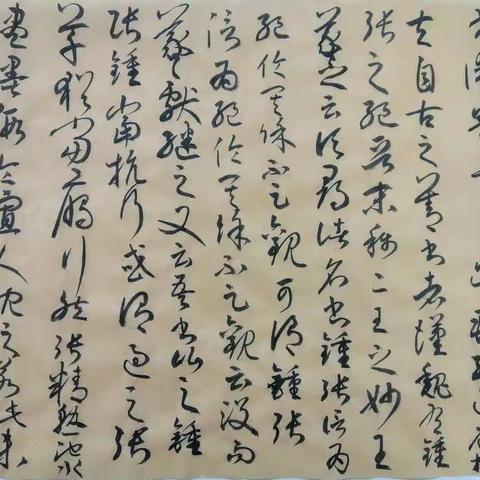 夫自古之善書者漢魏有鍾
張之絕晉末稱二王之妙王
羲之云頃尋諸名書鍾張信為
絕倫其餘不足觀可謂鍾張
信為絕倫其餘不足觀云沒而
羲獻繼之又云吾書比之鍾
張鍾當抗行或謂過之張
草猶當雁行然張精熟池水
盡墨假令寡人耽之若此未